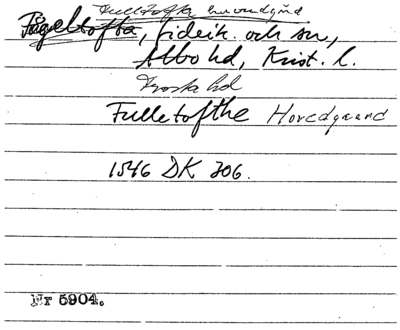 Fulltofta huvudgård
Fågeltofta, fideik. och sn,
Albo hd, Krist. l.
Frosta hd
Fulletofthe Hovedgaard
1546 DK 306.
Nr 5904.